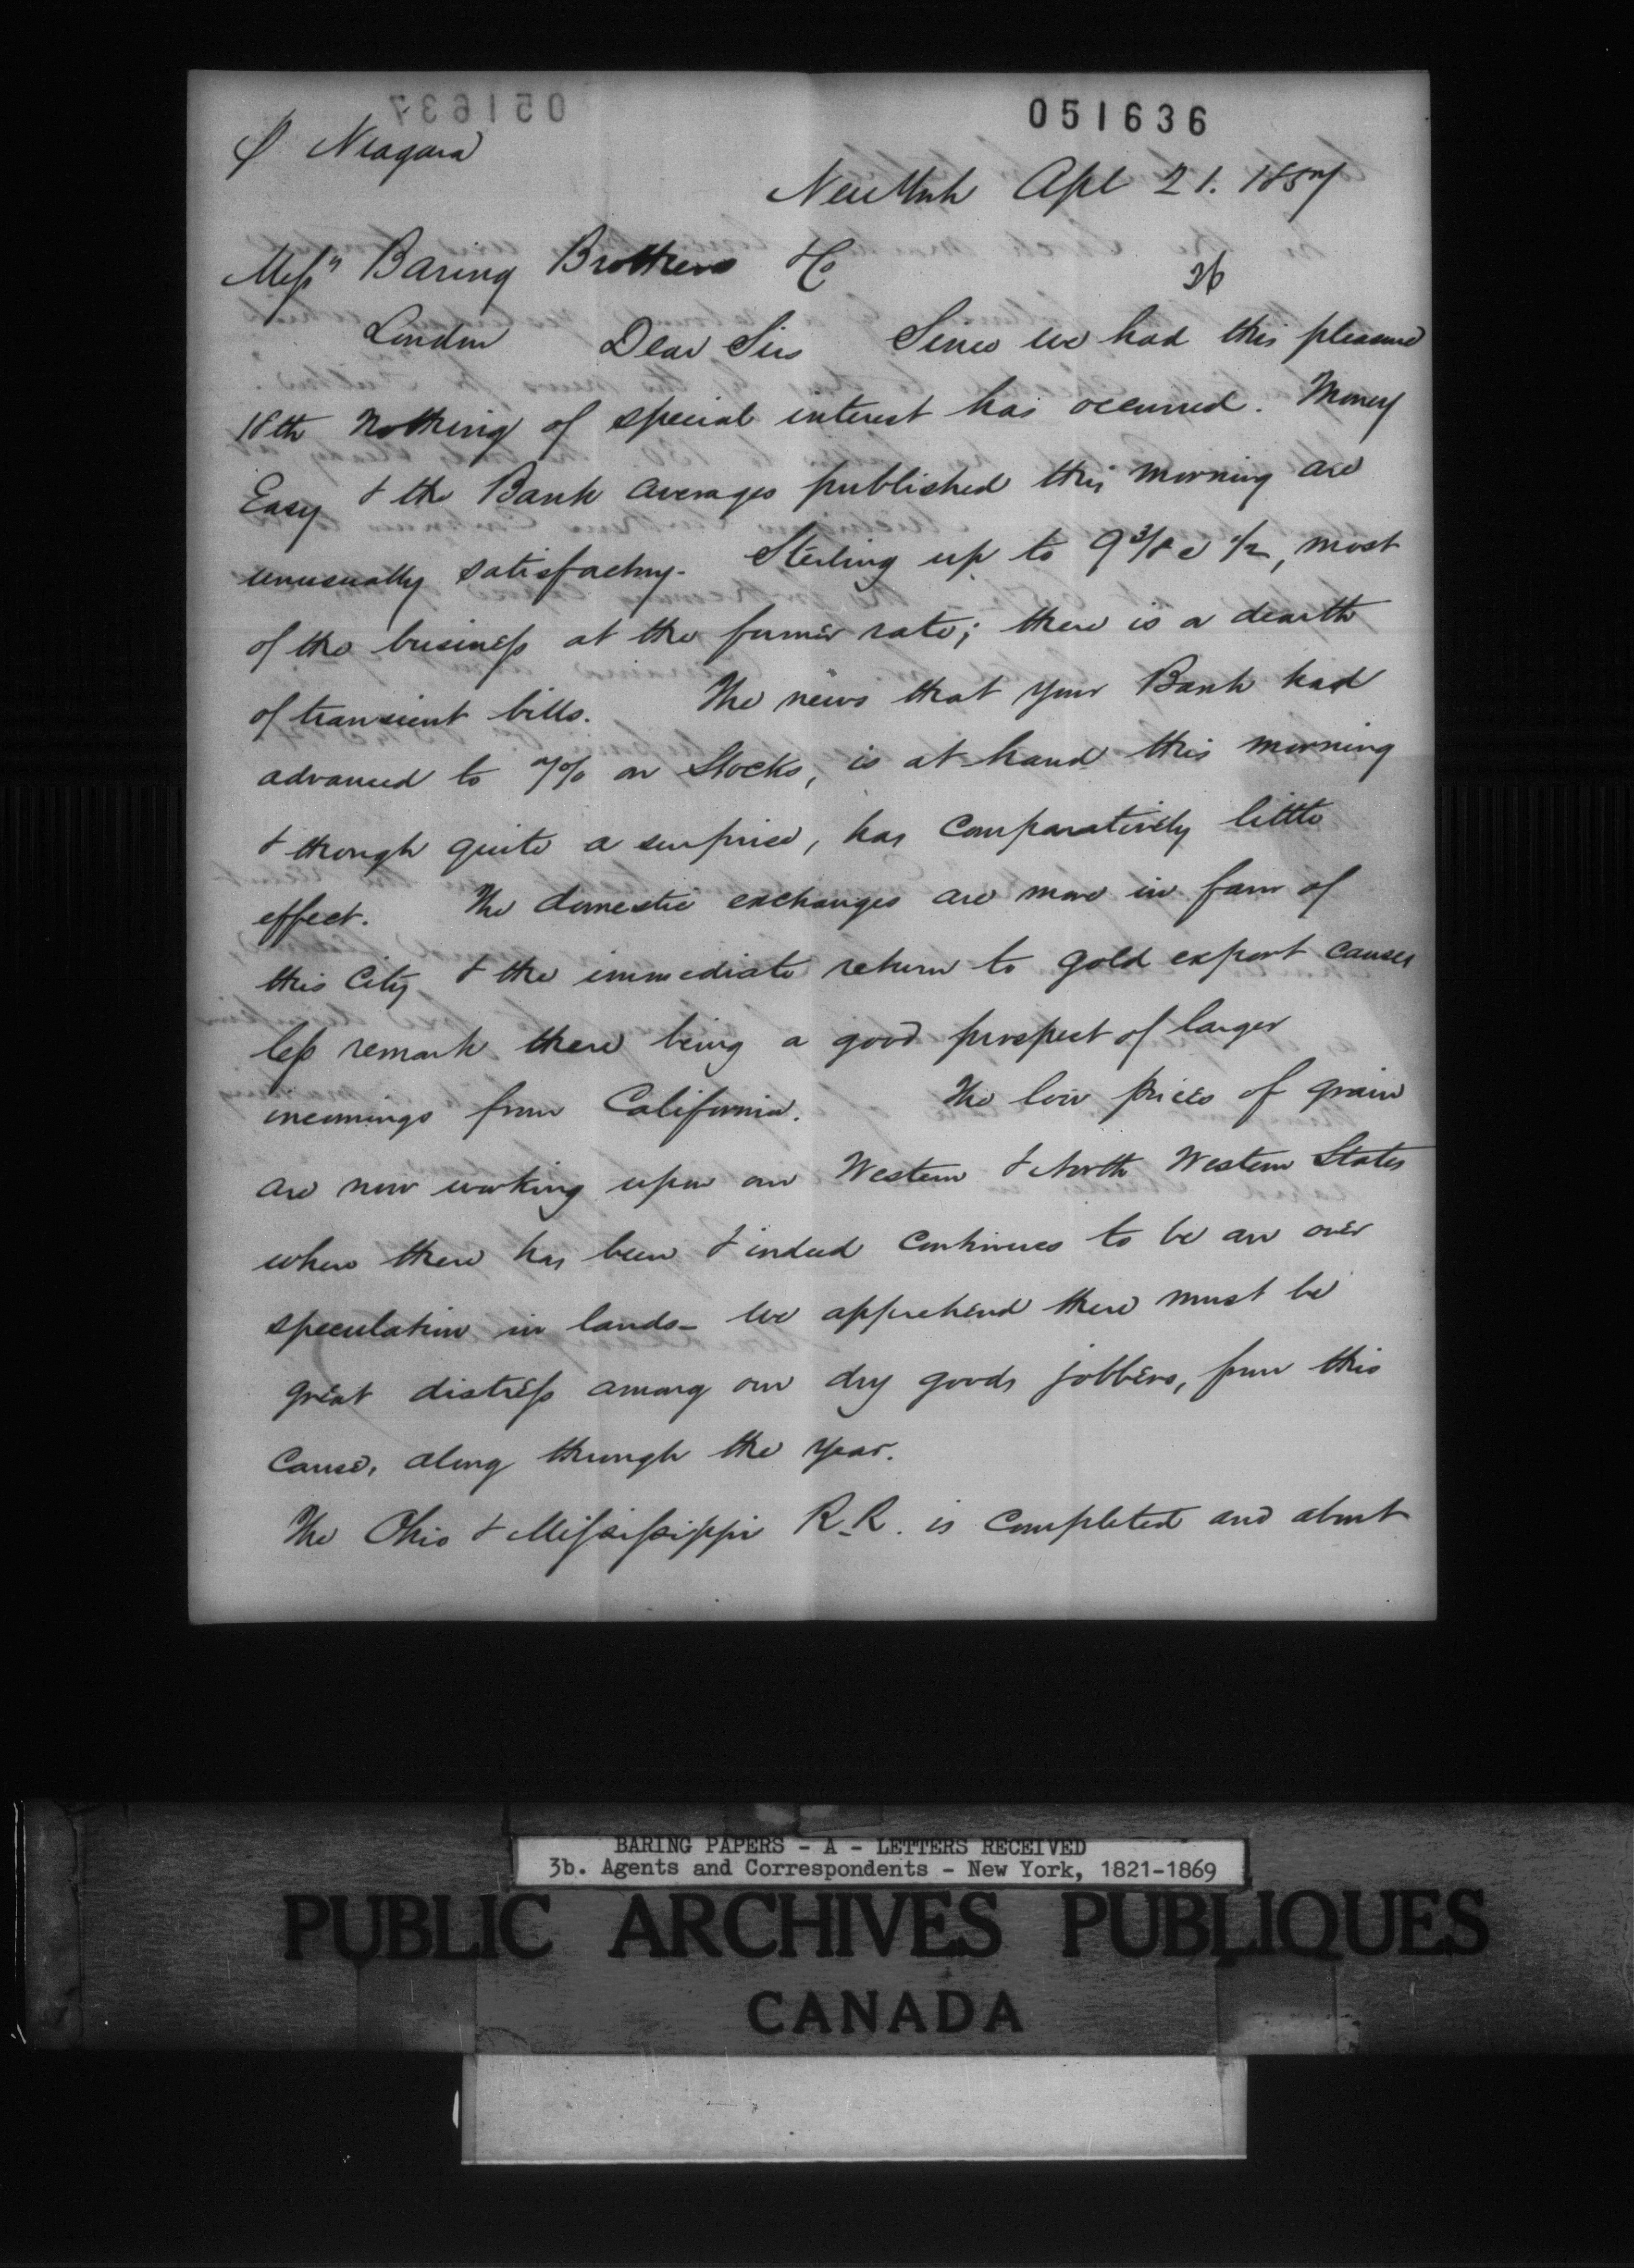 051636
℘ Niagara
New York Apl 21. 1857
Messrs Baring Brothers & Co
36
London Dear Sirs Since we had this pleasure
18th nothing of special interest has occurred. Money
Easy & the Bank averages published this morning are
unusually satisfactory. Sterling up to 9 3/8 @ 1/2, most
of the business at the former rate; there is a dearth
of transient bills. The news that your Bank had
advanced to 7% on Stocks, is at hand this morning
& though quite a surprise, has comparatively little
effect. The domestic exchanges are more in favor of
this City & the immediate return to gold export causes
less remark there being a good prospect of larger
incomings from California. The low prices of grain
are now working upon our Western & North Western States
where there has been & indeed continues to be an over
speculation in lands - we apprehend there must be
great distress among our dry goods jobbers, from this
cause, along through the year.
The Ohio & Mississippi R.R. is completed and about
BARING PAPERS - A - LETTERS RECEIVED
3b. Agents and Correspondents - New York, 1821-1869
PUBLIC ARCHIVES PUBLIQUES
CANADA